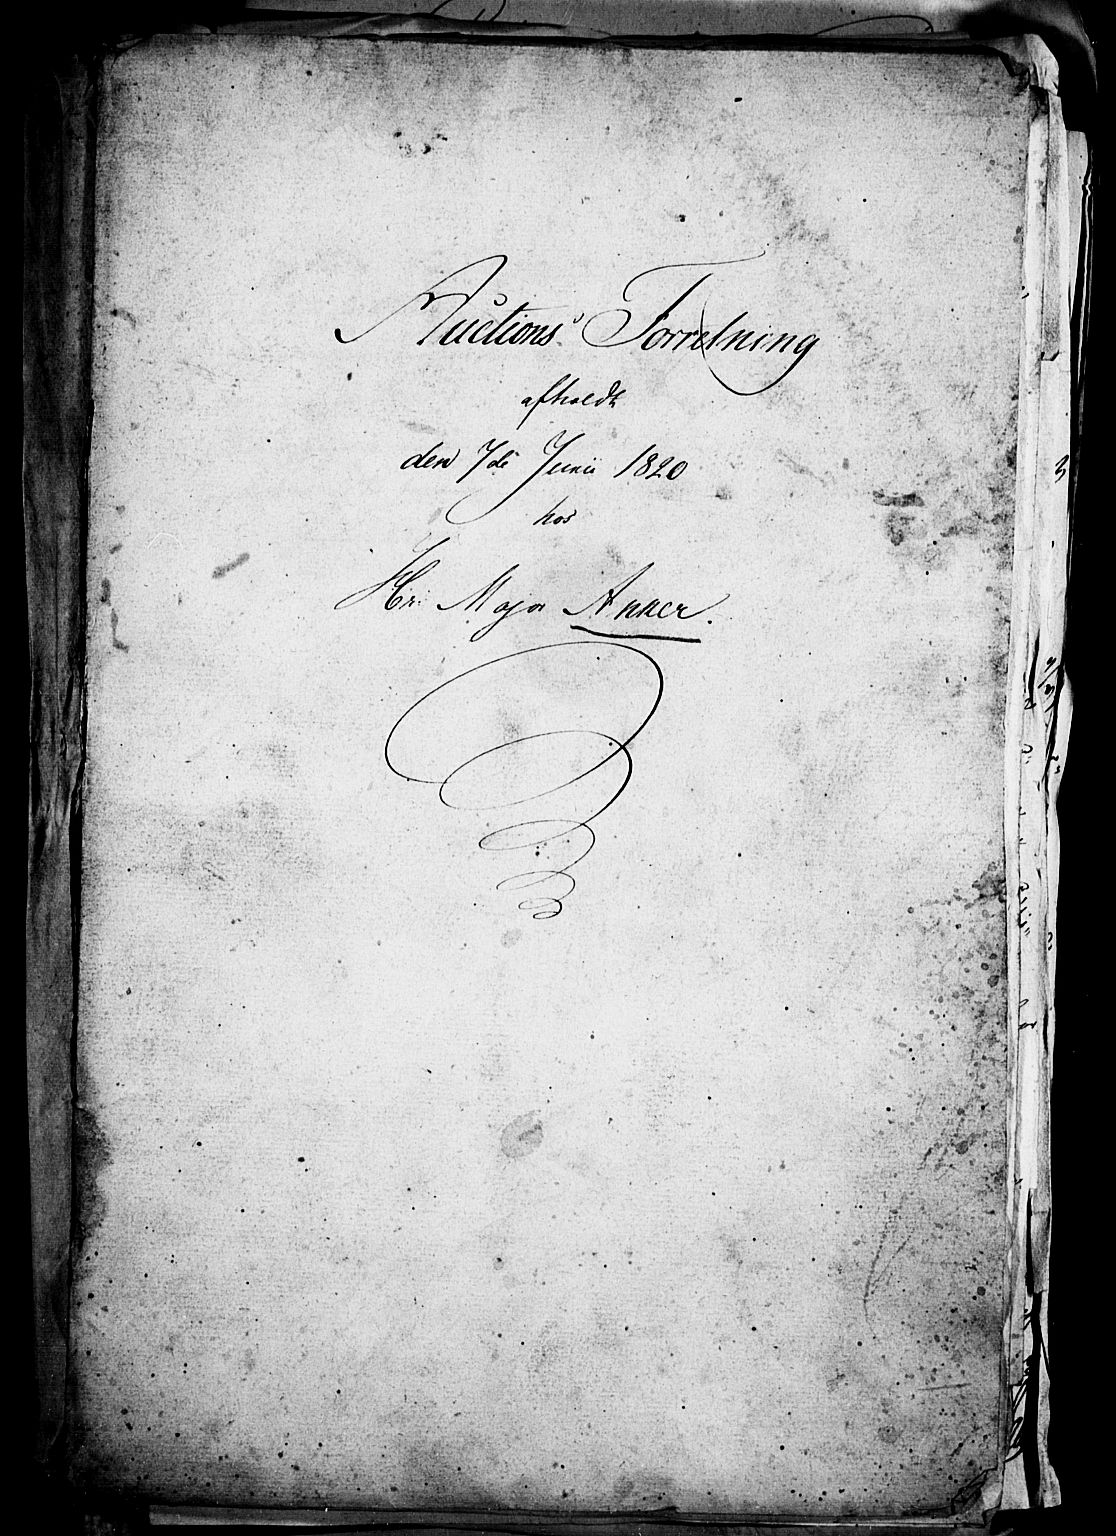 Auctions Forretning
afholdt
den 7de Junii 1820
hos
Hr: Major Anker.